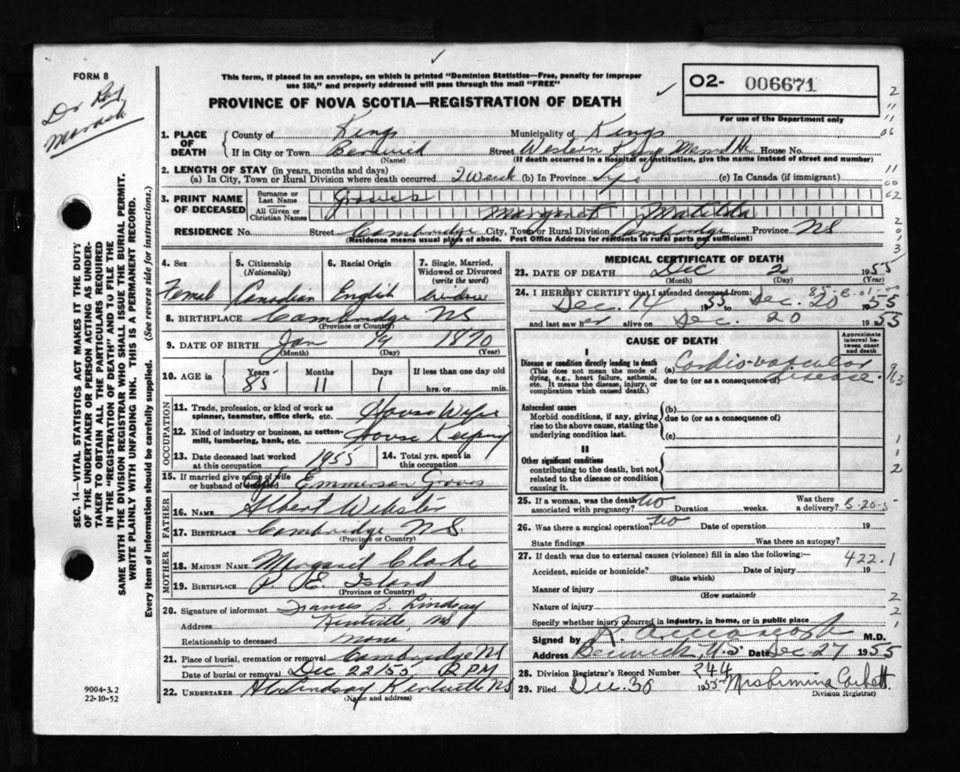 FORM 8
This form, if placed in an envelope, on which is printed "Dominion Statistics—Free, penalty for improper
use $50," and properly addressed will pass through the mail "FREE"
O2- 006671
For use of the Department only
PROVINCE OF NOVA SCOTIA—REGISTRATION OF DEATH
Dr
1. PLACE OF DEATH County of Kings Municipality of Kings
If in City or Town Berwick Street Western Kings Mem House No.
(Name) (If death occurred in a Hospital or Institution, give the name instead of street and number)
2. LENGTH OF STAY (in years, months and days)
(a) In City, Town or Rural Division where death occurred 2 Week (b) In Province (c) In Canada (if immigrant)
3. PRINT NAME OF DECEASED Surname or Last Name Graves
All Given or Christian Names Margaret Matilda
RESIDENCE No. Street Cambridge City, Town or Rural Division Cambridge Province NS
(Residence means usual place of abode. Post Office Address for residents in rural parts not sufficient)
SEC. 14—VITAL STATISTICS ACT MAKES IT THE DUTY
OF THE UNDERTAKER OR PERSON ACTING AS UNDER-
TAKER TO OBTAIN ALL THE PARTICULARS REQUIRED
IN THE "REGISTRATION OF DEATH" AND TO FILE THE
SAME WITH THE DIVISION REGISTRAR WHO SHALL ISSUE THE BURIAL PERMIT.
WRITE PLAINLY WITH UNFADING INK. THIS IS A PERMANENT RECORD.
Every item of information should be carefully supplied. (See reverse side for instructions.)
4. Sex 5. Citizenship (Nationality) 6. Racial Origin 7. Single, Married, Widowed or Divorced (write the word)
Femal Canadian English widow
8. BIRTHPLACE Cambridge NS
(Province or Country)
9. DATE OF BIRTH Jan 19 1870
(Month) (Day) (Year)
10. AGE in Years 85 Months 11 Days 1 If less than one day old
hrs. or min.
OCCUPATION
11. Trade, profession, or kind of work as spinner, teamster, office clerk, etc. House Wife
12. Kind of industry or business, as cotton-mill, lumbering, bank, etc. House Keeping
13. Date deceased last worked at this occupation 1955 14. Total yrs. spent in this occupation
15. If married give name of wife or husband of deceased Emmerson Graves
FATHER
16. NAME Albert Webster
17. BIRTHPLACE Cambridge NS
(Province or Country)
MOTHER
18. MAIDEN NAME Margaret Clarke
19. BIRTHPLACE P. E. Island
(Province or Country)
20. Signature of informant Lindsay
Address Kentville, NS
Relationship to deceased None
21. Place of burial, cremation or removal Cambridge NS
Date of burial or removal Dec 22/55 2 PM
22. UNDERTAKER Lindsay Kentville NS
(Name and address)
9004-3.2
22-10-52
MEDICAL CERTIFICATE OF DEATH
23. DATE OF DEATH Dec 1955
24. I HEREBY CERTIFY that I attended deceased from:
Dec. 14 55 to Dec. 20 1955
and last saw her alive on Dec. 20 1955
CAUSE OF DEATH Approximate interval between onset and death
I
Disease or condition directly leading to death (a) Cardio-vascular disease.
(This does not mean the mode of dying, e.g., heart failure, asthenia, etc. It means the disease, injury, or complication which caused death.)
due to (or as a consequence of)
Antecedent causes (b)
Morbid conditions, if any, giving rise to the above cause, stating the underlying condition last.
due to (or as a consequence of)
(c)
II
Other significant conditions
contributing to the death, but not related to the disease or condition causing it.
25. If a woman, was the death associated with pregnancy? No Duration weeks. Was there a delivery?
26. Was there a surgical operation? No Date of operation 19
State findings Was there an autopsy?
27. If death was due to external causes (violence) fill in also the following: 422.1
Accident, suicide or homicide? Date of injury 19
(State which)
Manner of injury
(How sustained)
Nature of injury
Specify whether injury occurred in industry, in home, or in public place
Signed by M.D.
Address Berwick, N.S Date Dec 27 1955
28. Division Registrar's Record Number 244
29. Filed Dec. 30 1955 Mrs Corbett
Division Registrar)